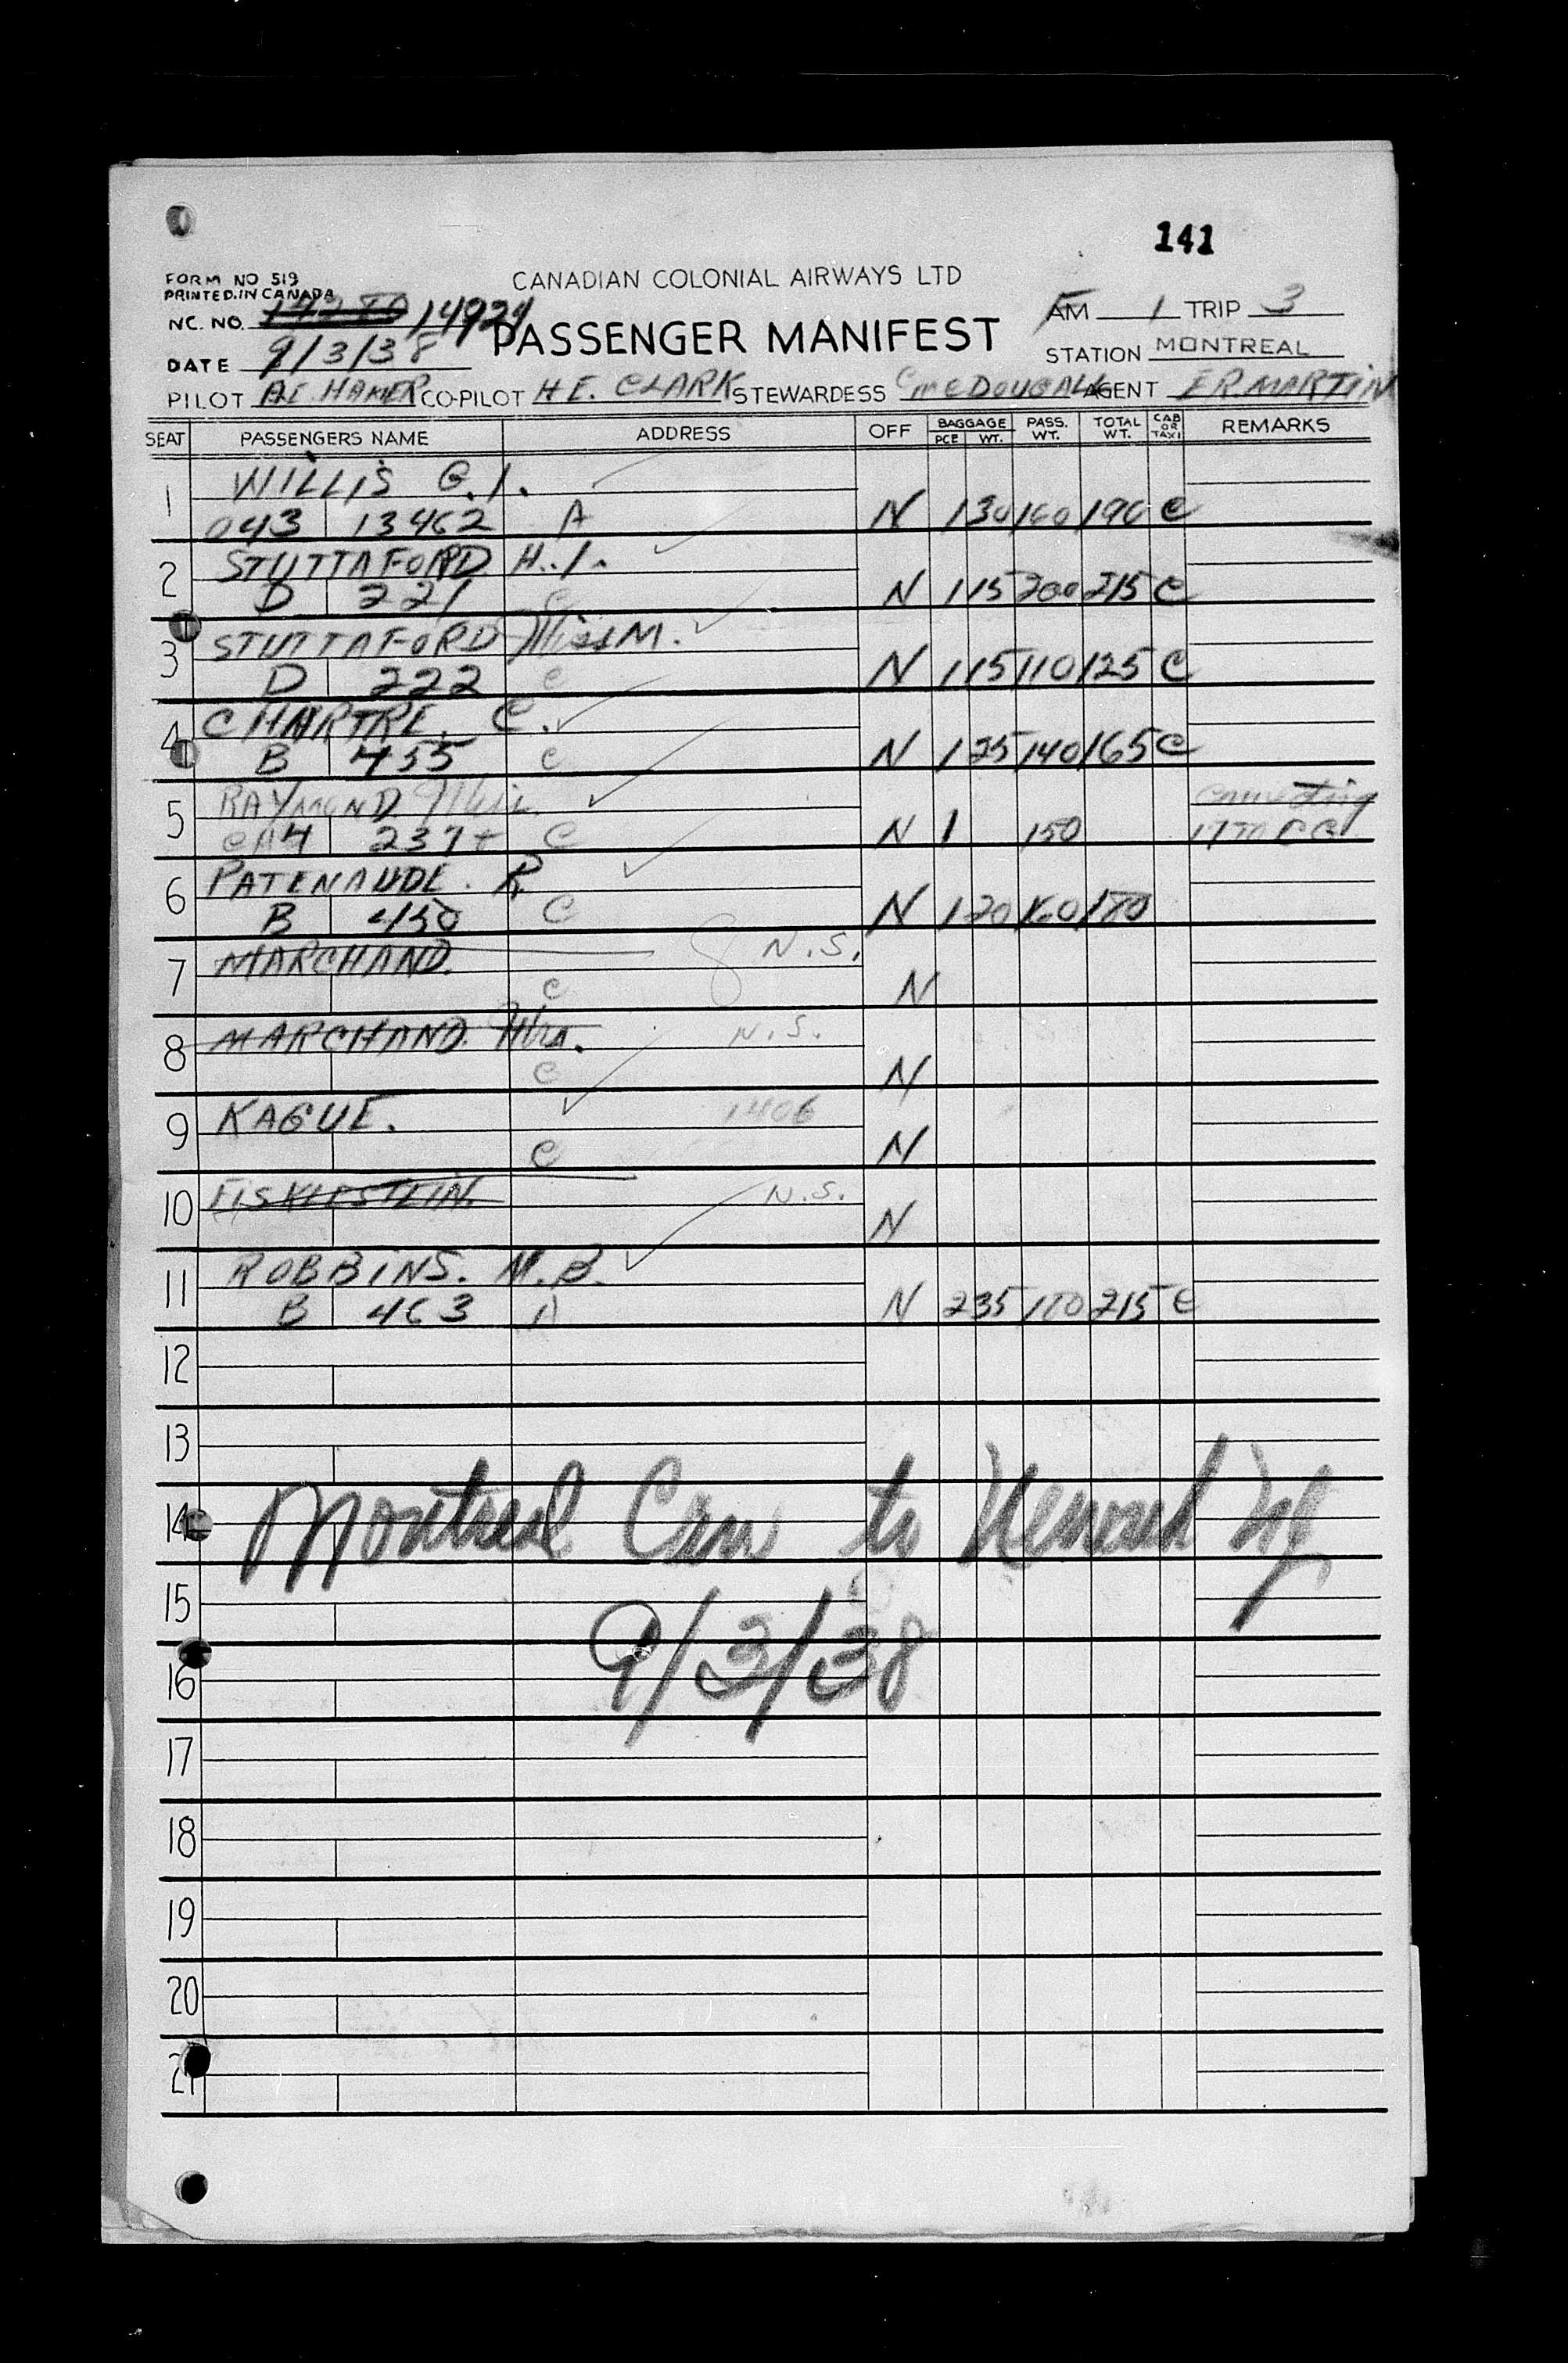 141
FORM NO 519
PRINTED IN CANADA
CANADIAN COLONIAL AIRWAYS LTD
NC. NO. 14924
PASSENGER MANIFEST
AM 1 TRIP 3
DATE 9/3/38
STATION MONTREAL
PILOT A.E. HAMER CO-PILOT H E. CLARK STEWARDESS C MCDOUGALL AGENT E.R. MARTIN
SEAT PASSENGERS NAME ADDRESS OFF BAGGAGE PCE WT. PASS. WT. TOTAL WT. CAB OR TAXI REMARKS
1 WILLIS G. I.
043 13462 A N 1 30 160 190 C
2 STUTTAFORD H. I.
D 221 C N 1 15 200 215 C
3 STUTTAFORD Miss M.
D 222 C N 1 15 110 125 C
4 CHARTRE. C.
B 455 C N 1 25 140 165 C
5 RAYMOND. connecting
CA4 237+ C N 1 150
6 PATENAUDE. R
B 450 C N 1 20 160 180
7 MARCHAND. N.S.
C N
8 MARCHAND. Mrs. N.S.
C N
9 KAGUE. 1406
C N
10 N.S.
N
11 ROBBINS. M. B.
B 463 A N 2 35 180 215 C
12
13
14 Montreal Can to Newark NJ
15
9/3/38
16
17
18
19
20
21